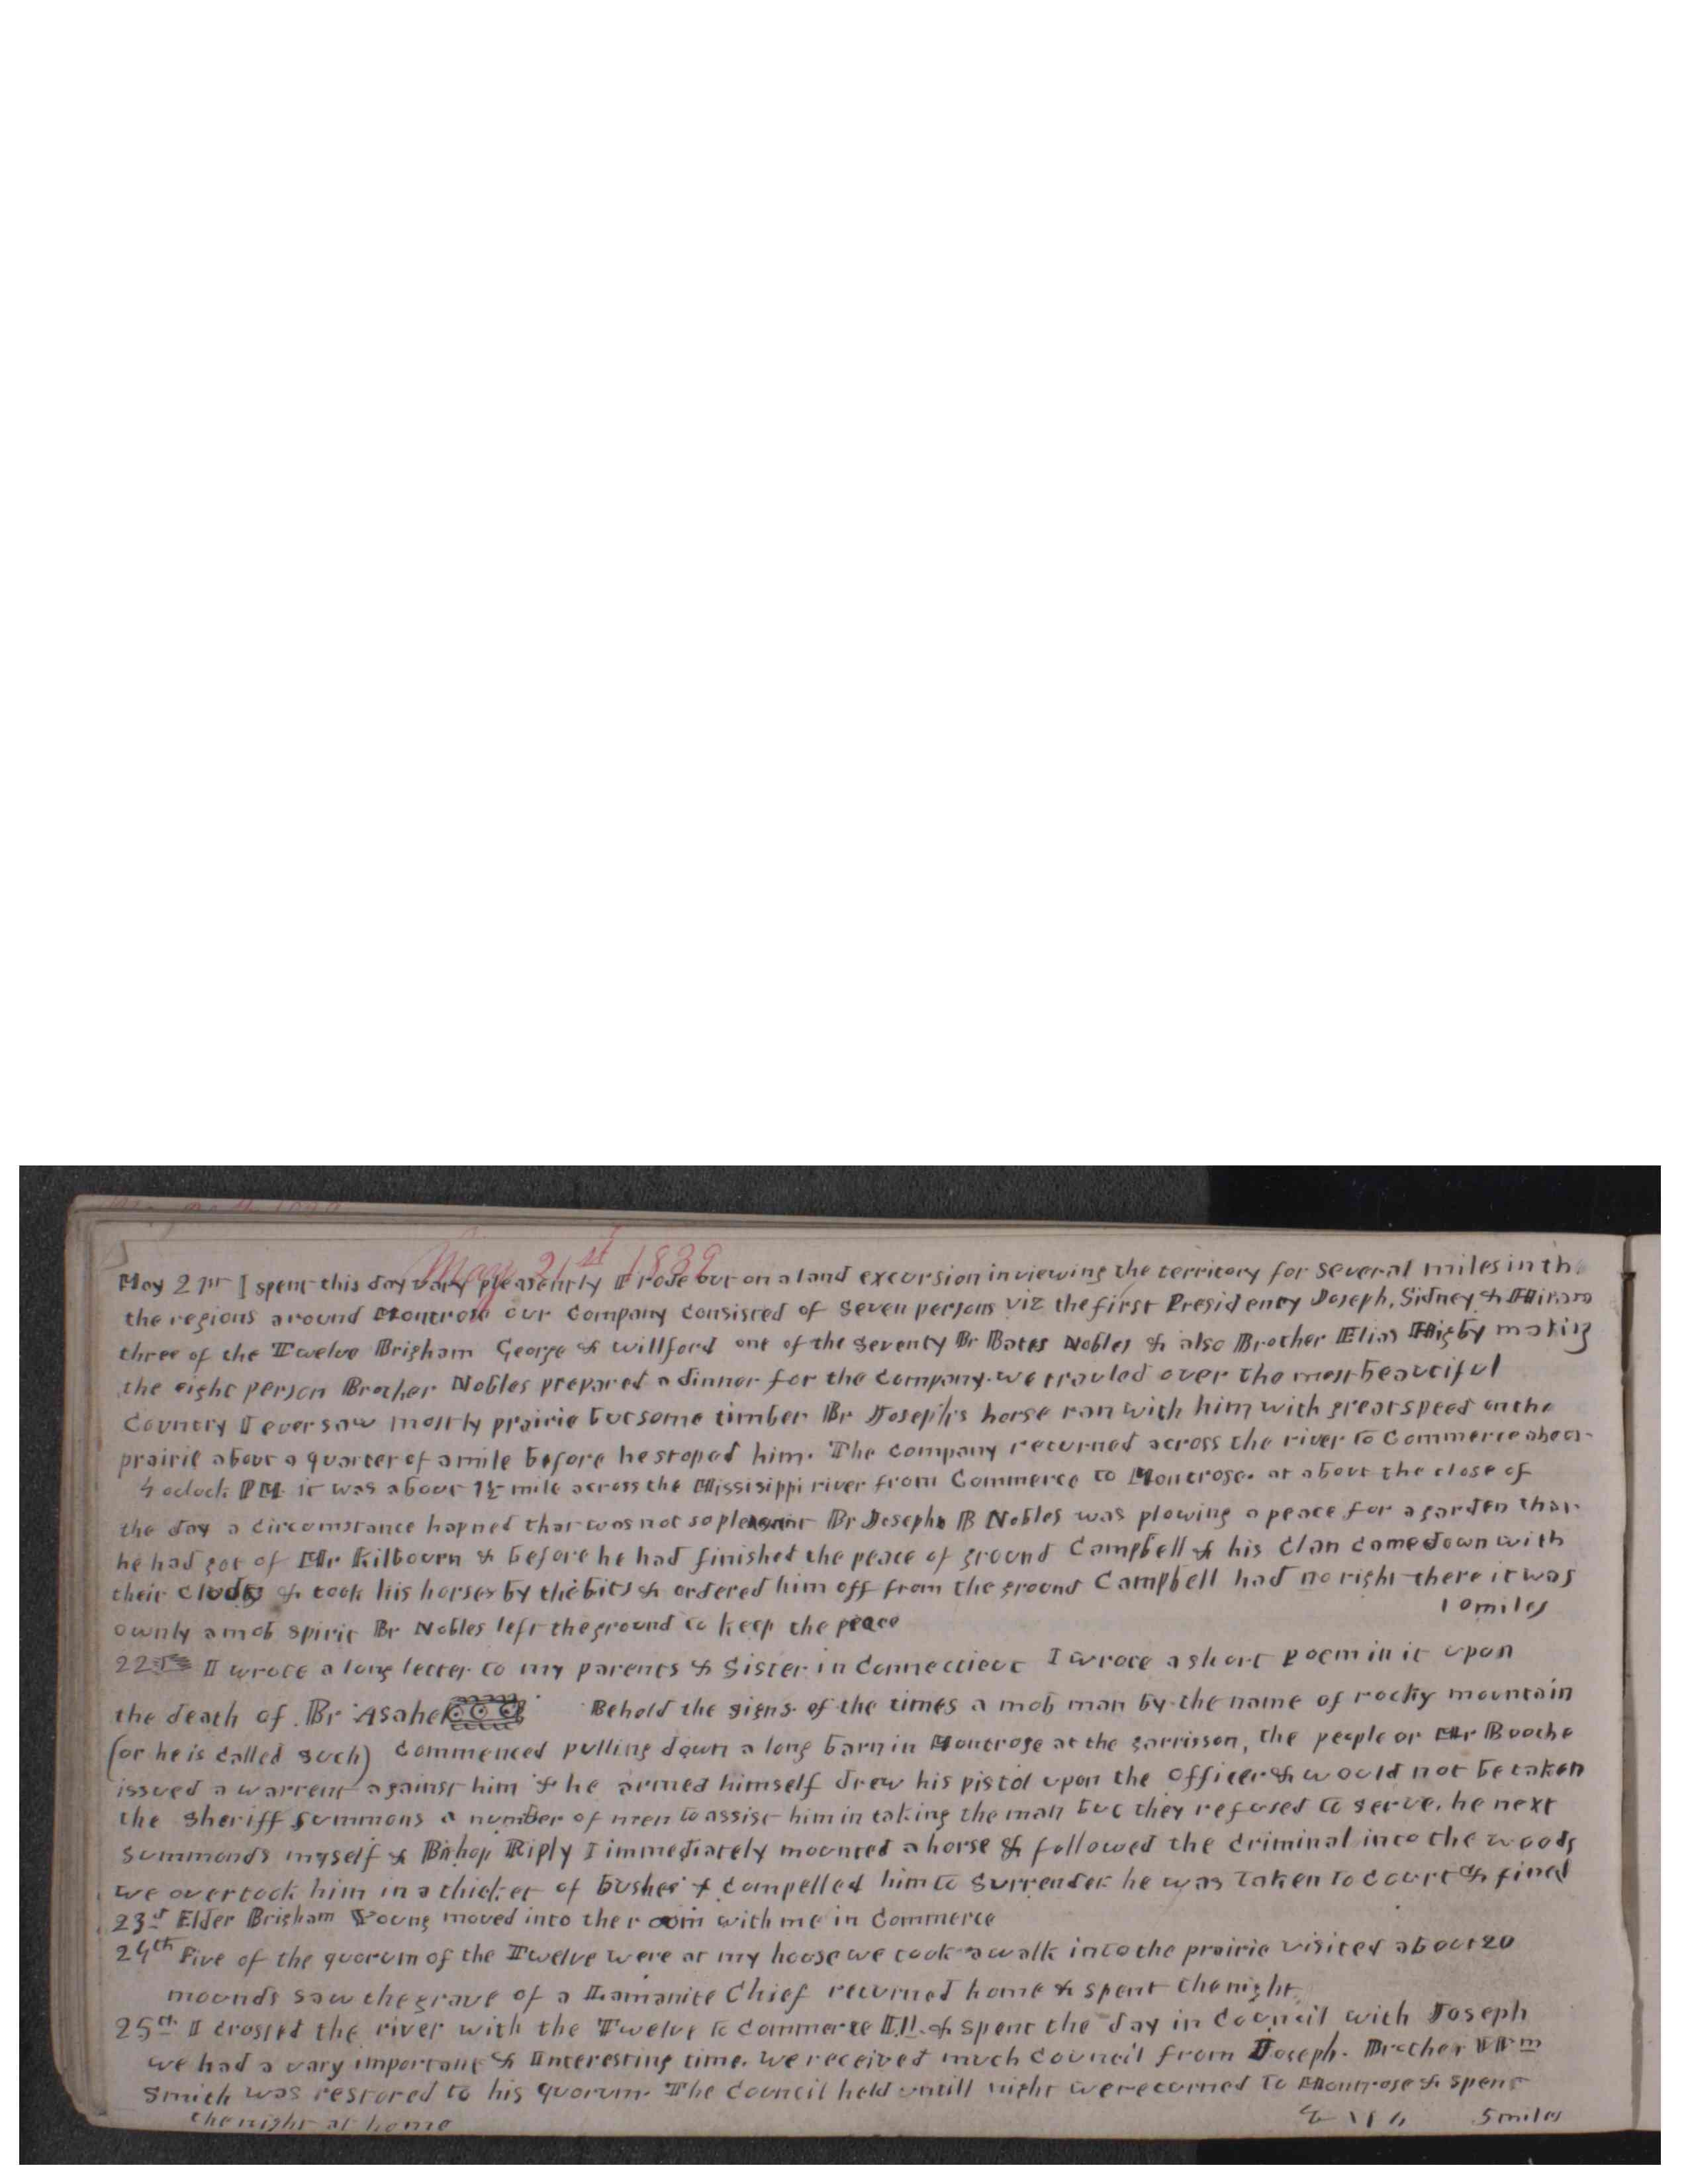 May 21st 1839
May 21st I spent this day vary pleasently I rode out on a land excursion in viewing the territory for several miles in th
the regions around Montrose our Company Consisted of Seven persons viz the first Presidency Joseph, Sidney & Hiram
three of the Twelve Brigham George & willford one of the Seventy Br Bates Nobles & also Brother Elias Higby making
the eight person Brother Nobles prepared a dinner for the Company. we travled over the most beautiful
Country I ever saw mostly prairie but some timber Br Joseph's horse ran with him with great speed on the
prairie about a quarter of a mile before he stoped him. The Company returned across the river to Commerce about
4 oclock PM. it was about 1½ mile across the Mississippi river from Commerce to Montrose. at about the close of
the day a circumstance hapned that was not so pleasant Br Joseph B Nobles was plowing a peace for a garden that
he had got of Mr Kilbourn & before he had finished the peace of ground Campbell & his Clan came down with
their clubs & took his horses by the bits & ordered him off from the ground Campbell had no right there it was
10 miles
ownly a mob spirit Br Nobles left the ground to keep the peace
22 I wrote a long letter to my parents & Sister in Connecticut I wrote a short poem in it upon
the death of Br Asahel Behold the signs of the times a mob man by the name of rocky mountain
(or he is called such) Commenced pulling down a long barn in Montrose at the garrisson, the people or Mr Booche
issued a warrent against him & he armed himself drew his pistol upon the officer & would not be taken
the Sheriff summons a number of men to assist him in taking the man but they refused to serve. he next
Summonds myself & Bishop Riply I immediately mounted a horse & followed the criminal into the woods
we overtook him in a thicket of bushes & compelled him to surrender he was taken to court & fined
23d Elder Brigham Young moved into the room with me in Commerce
24th Five of the quorum of the Twelve were at my house we took a walk into the prairie visited about 20
mounds saw the grave of a Lamanite Chief returned home & spent the night
25th I crossed the river with the Twelve to Commerce Ill. & spent the day in Council with Joseph
we had a vary important & Interesting time. We received much council from Joseph. Brother Wm
Smith was restored to his quorum. The Council held untill night we recorned to Montrose & spent
the night at home 5 miles